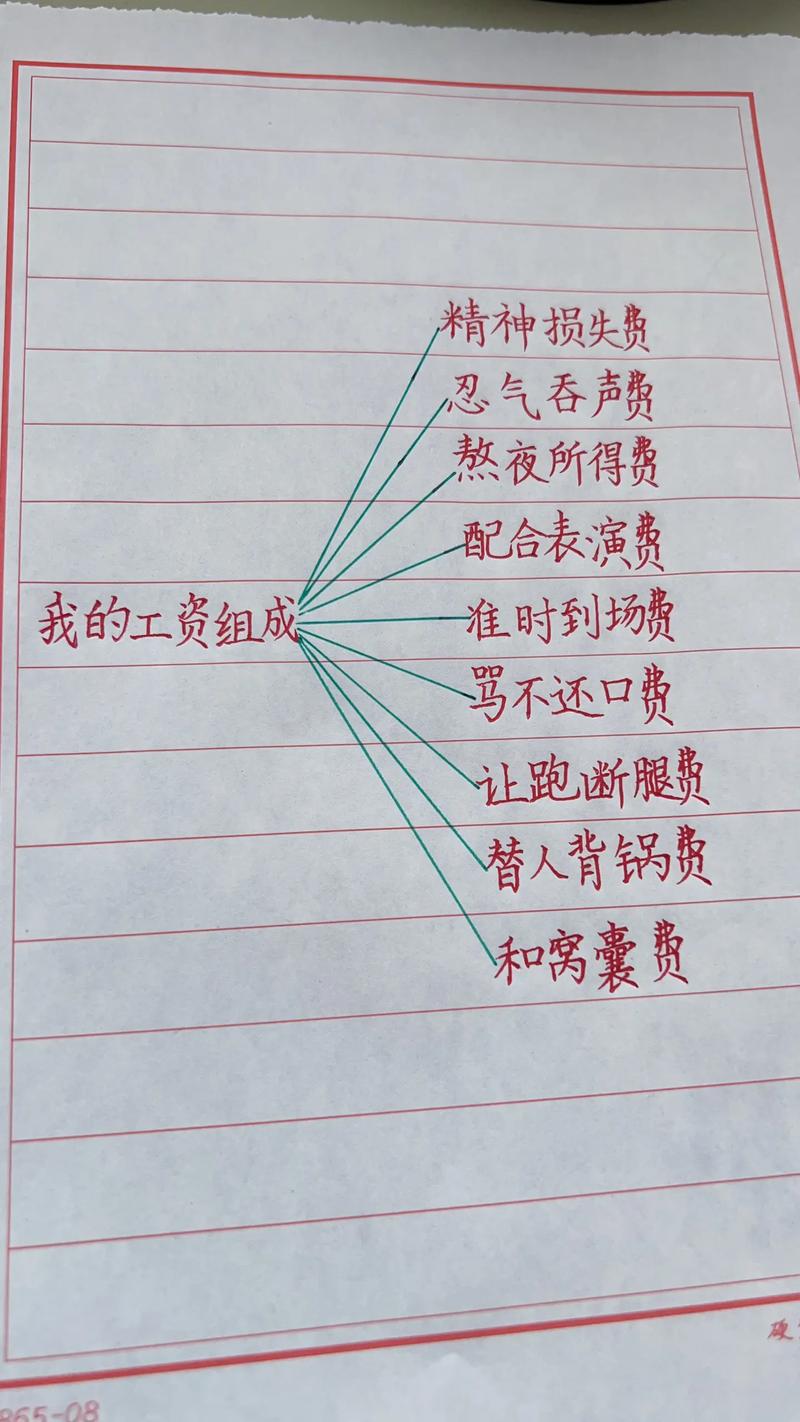 精神损失费
忍气吞声费
熬夜所得费
配合表演费
我的工资组成
准时到场费
骂不还口费
让跑断腿费
替人背锅费
和窝囊费
硬
865-08